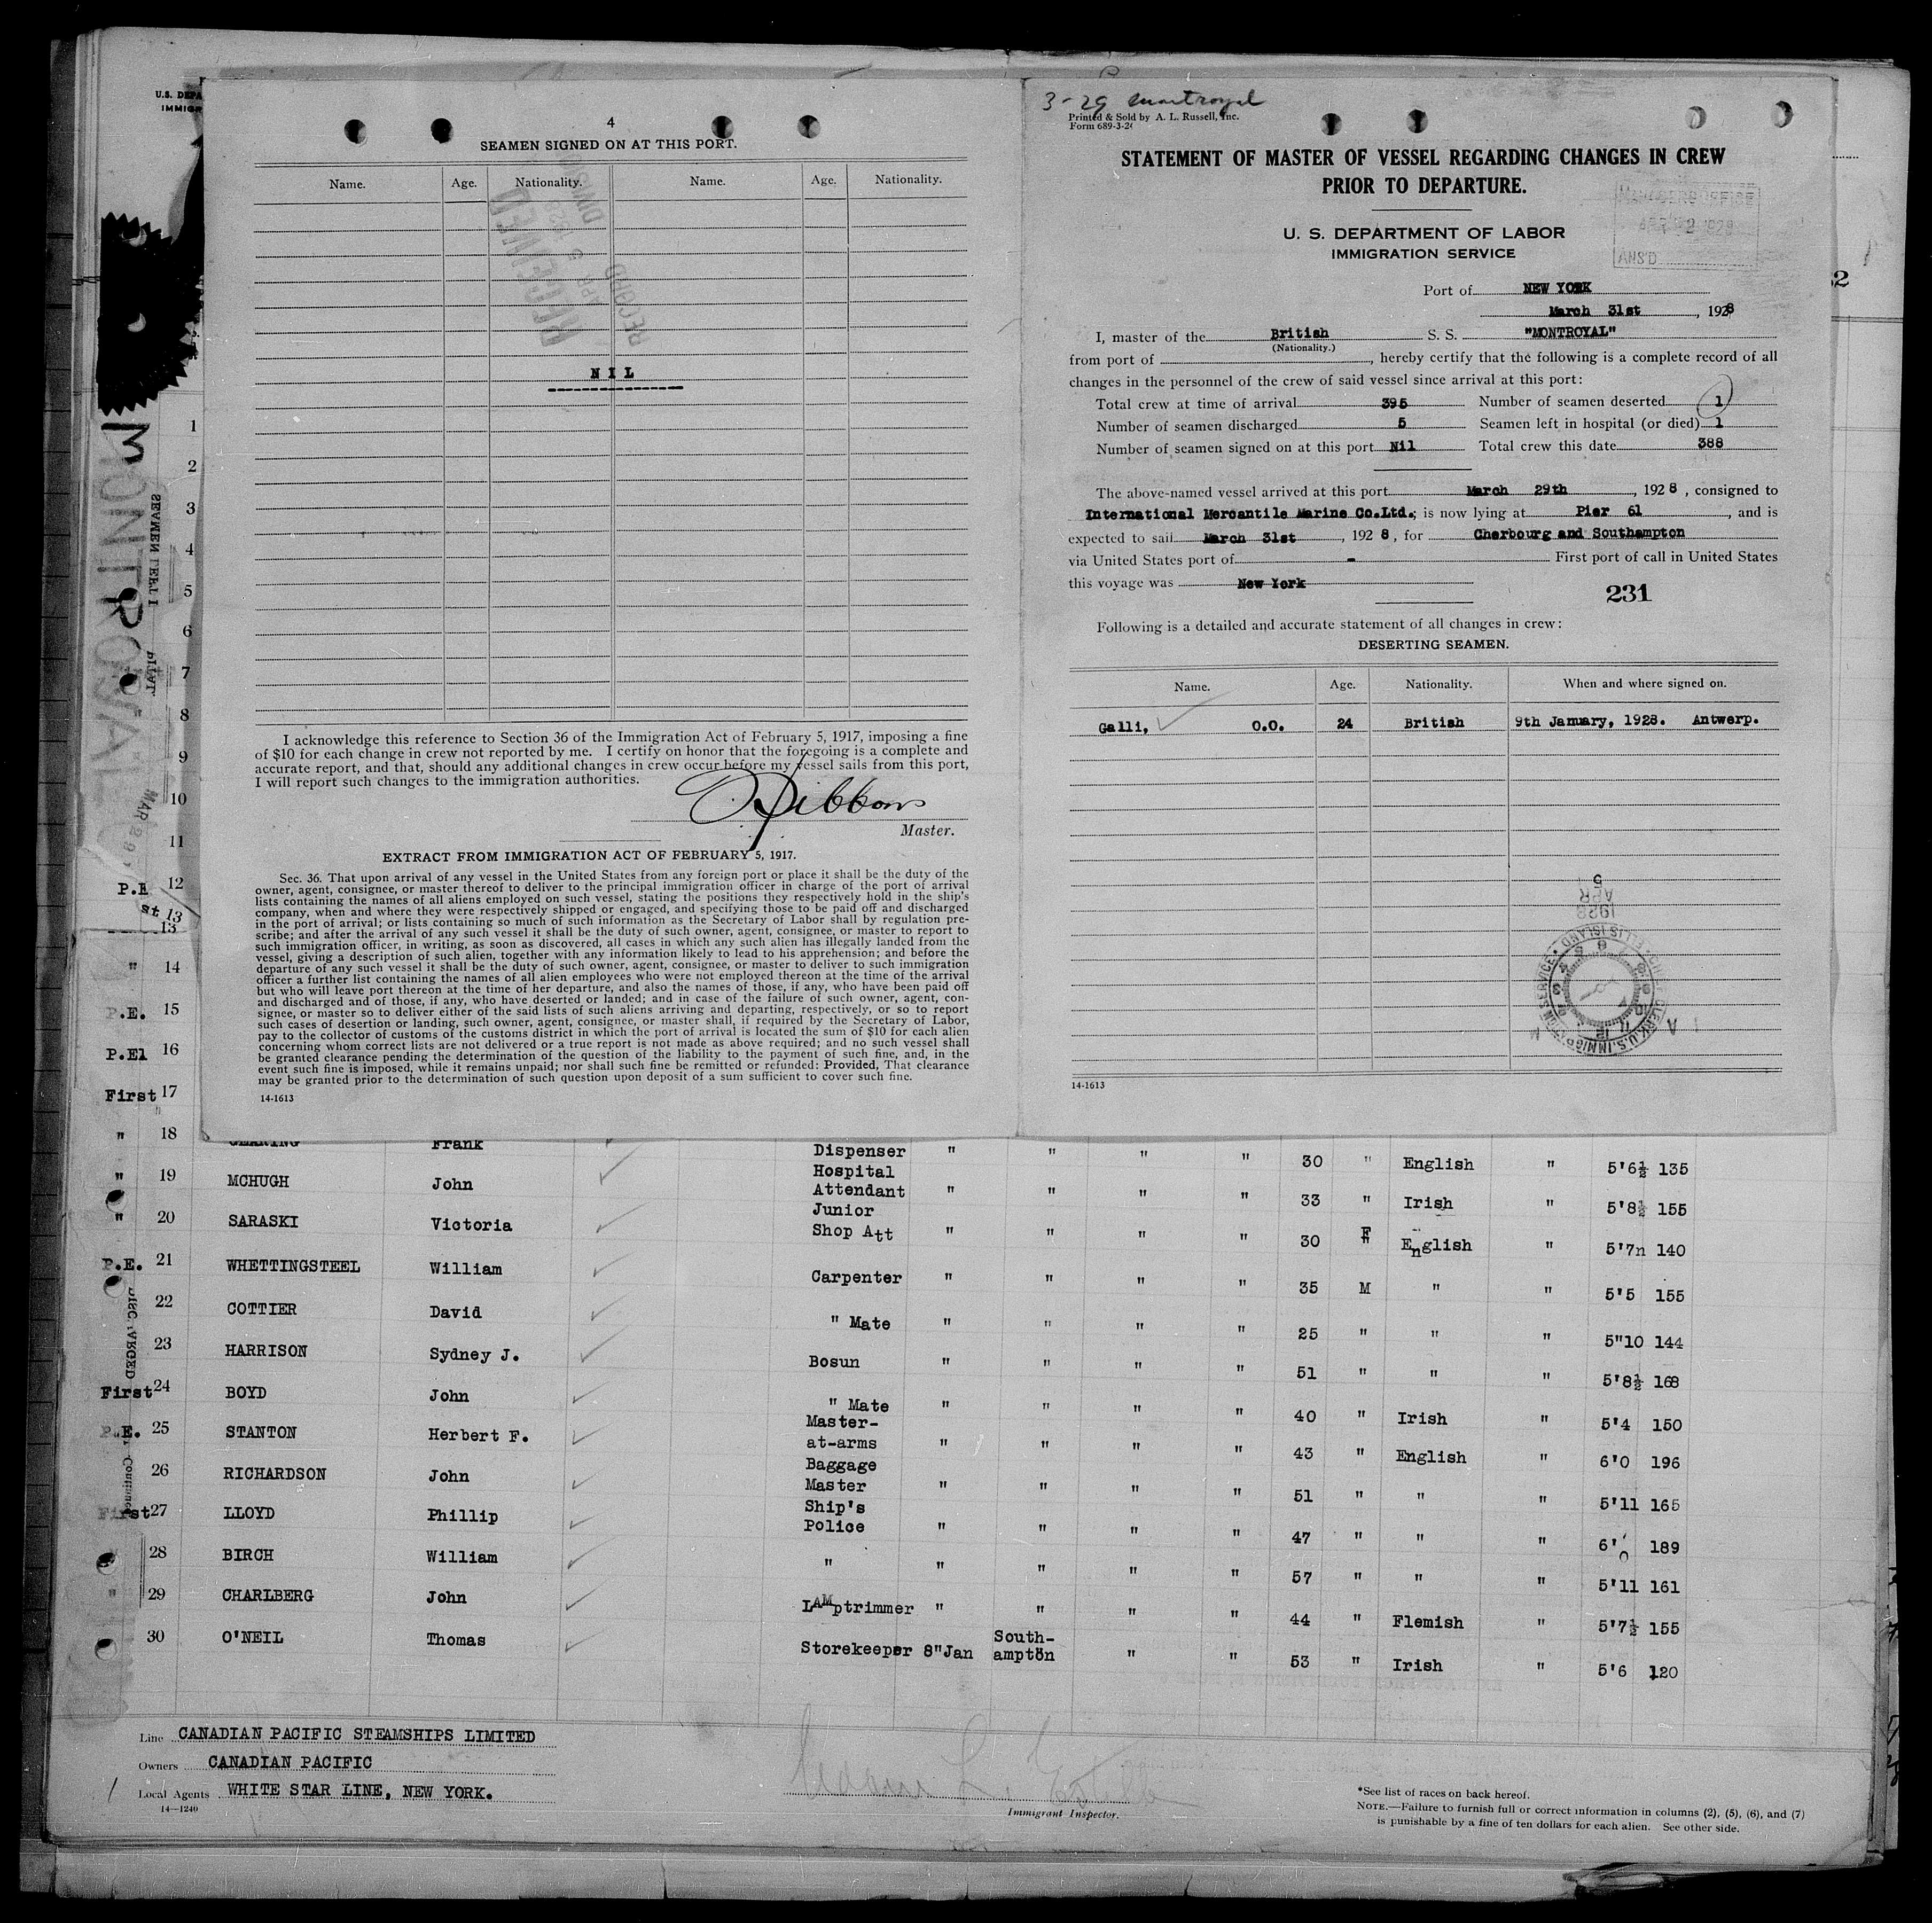 U.S. DEPA
IMMIGR
4
SEAMEN SIGNED ON AT THIS PORT.
Name. Age. Nationality. Name. Age. Nationality.
RECEIVED
APR 5 1928
RECORD DIVISION
NIL
I acknowledge this reference to Section 36 of the Immigration Act of February 5, 1917, imposing a fine
of $10 for each change in crew not reported by me. I certify on honor that the foregoing is a complete and
accurate report, and that, should any additional changes in crew occur before my vessel sails from this port,
I will report such changes to the immigration authorities.
Master.
EXTRACT FROM IMMIGRATION ACT OF FEBRUARY 5, 1917.
Sec. 36. That upon arrival of any vessel in the United States from any foreign port or place it shall be the duty of the
owner, agent, consignee, or master thereof to deliver to the principal immigration officer in charge of the port of arrival
lists containing the names of all aliens employed on such vessel, stating the positions they respectively hold in the ship's
company, when and where they were respectively shipped or engaged, and specifying those to be paid off and discharged
in the port of arrival; or lists containing so much of such information as the Secretary of Labor shall by regulation pre-
scribe; and after the arrival of any such vessel it shall be the duty of such owner, agent, consignee, or master to report to
such immigration officer, in writing, as soon as discovered, all cases in which any such alien has illegally landed from the
vessel, giving a description of such alien, together with any information likely to lead to his apprehension; and before the
departure of any such vessel it shall be the duty of such owner, agent, consignee, or master to deliver to such immigration
officer a further list containing the names of all alien employees who were not employed thereon at the time of the arrival
but who will leave port thereon at the time of her departure, and also the names of those, if any, who have been paid off
and discharged and of those, if any, who have deserted or landed; and in case of the failure of such owner, agent, con-
signee, or master so to deliver either of the said lists of such aliens arriving and departing, respectively, or so to report
such cases of desertion or landing, such owner, agent, consignee, or master shall, if required by the Secretary of Labor,
pay to the collector of customs of the customs district in which the port of arrival is located the sum of $10 for each alien
concerning whom correct lists are not delivered or a true report is not made as above required; and no such vessel shall
be granted clearance pending the determination of the question of the liability to the payment of such fine, and, in the
event such fine is imposed, while it remains unpaid; nor shall such fine be remitted or refunded: Provided, That clearance
may be granted prior to the determination of such question upon deposit of a sum sufficient to cover such fine.
14-1613
3-29 Montroyal
Printed & Sold by A. L. Russell, Inc.
Form 689-3-2
STATEMENT OF MASTER OF VESSEL REGARDING CHANGES IN CREW
PRIOR TO DEPARTURE.
MANAGERS OFFICE
APR 2 1928
ANS'D
U. S. DEPARTMENT OF LABOR
IMMIGRATION SERVICE
Port of NEW YORK
March 31st, 1928
I, master of the British S. S. "MONTROYAL"
(Nationality.)
from port of , hereby certify that the following is a complete record of all
changes in the personnel of the crew of said vessel since arrival at this port:
Total crew at time of arrival 395 Number of seamen deserted 1
Number of seamen discharged 5 Seamen left in hospital (or died) 1
Number of seamen signed on at this port Nil Total crew this date 388
The above-named vessel arrived at this port March 29th, 1928, consigned to
International Mercantile Marine Co.Ltd.; is now lying at Pier 61, and is
expected to sail March 31st, 1928, for Cherbourg and Southampton
via United States port of - First port of call in United States
this voyage was New York
231
Following is a detailed and accurate statement of all changes in crew:
DESERTING SEAMEN.
Name. Age. Nationality. When and where signed on.
Galli, O.O. 24 British 9th January, 1928. Antwerp.
14-1613
MONTROYAL
1
2
3
4
5
6
7
8
9
10
11
P.E 12
st 13
13
" 14
P.E. 15
P.El 16
First 17
" 18 GEARING Frank Dispenser " " " " 30 " English " 5'6½ 135
" 19 MCHUGH John Hospital Attendant " " " " 33 " Irish " 5'8½ 155
" 20 SARASKI Victoria Junior Shop Att " " " " 30 F English " 5'7n 140
P.E. 21 WHETTINGSTEEL William Carpenter " " " " 35 M " " 5'5 155
22 COTTIER David " Mate " " " " 25 " " " 5"10 144
23 HARRISON Sydney J. Bosun " " " " 51 " " " 5'8½ 168
First 24 BOYD John " Mate " " " " 40 " Irish " 5'4 150
P.E. 25 STANTON Herbert F. Master-at-arms " " " " 43 " English " 6'0 196
26 RICHARDSON John Baggage Master " " " " 51 " " " 5'11 165
First 27 LLOYD Phillip Ship's Police " " " " 47 " " " 6'0 189
28 BIRCH William " " " " " 57 " " " 5'11 161
" 29 CHARLBERG John LAMptrimmer " " " " 44 " Flemish " 5'7½ 155
30 O'NEIL Thomas Storekeeper 8"Jan South-ampton " " 53 " Irish " 5'6 120
Line CANADIAN PACIFIC STEAMSHIPS LIMITED
Owners CANADIAN PACIFIC
Local Agents WHITE STAR LINE, NEW YORK.
14—1240
Immigrant Inspector.
*See list of races on back hereof.
NOTE.—Failure to furnish full or correct information in columns (2), (5), (6), and (7)
is punishable by a fine of ten dollars for each alien. See other side.